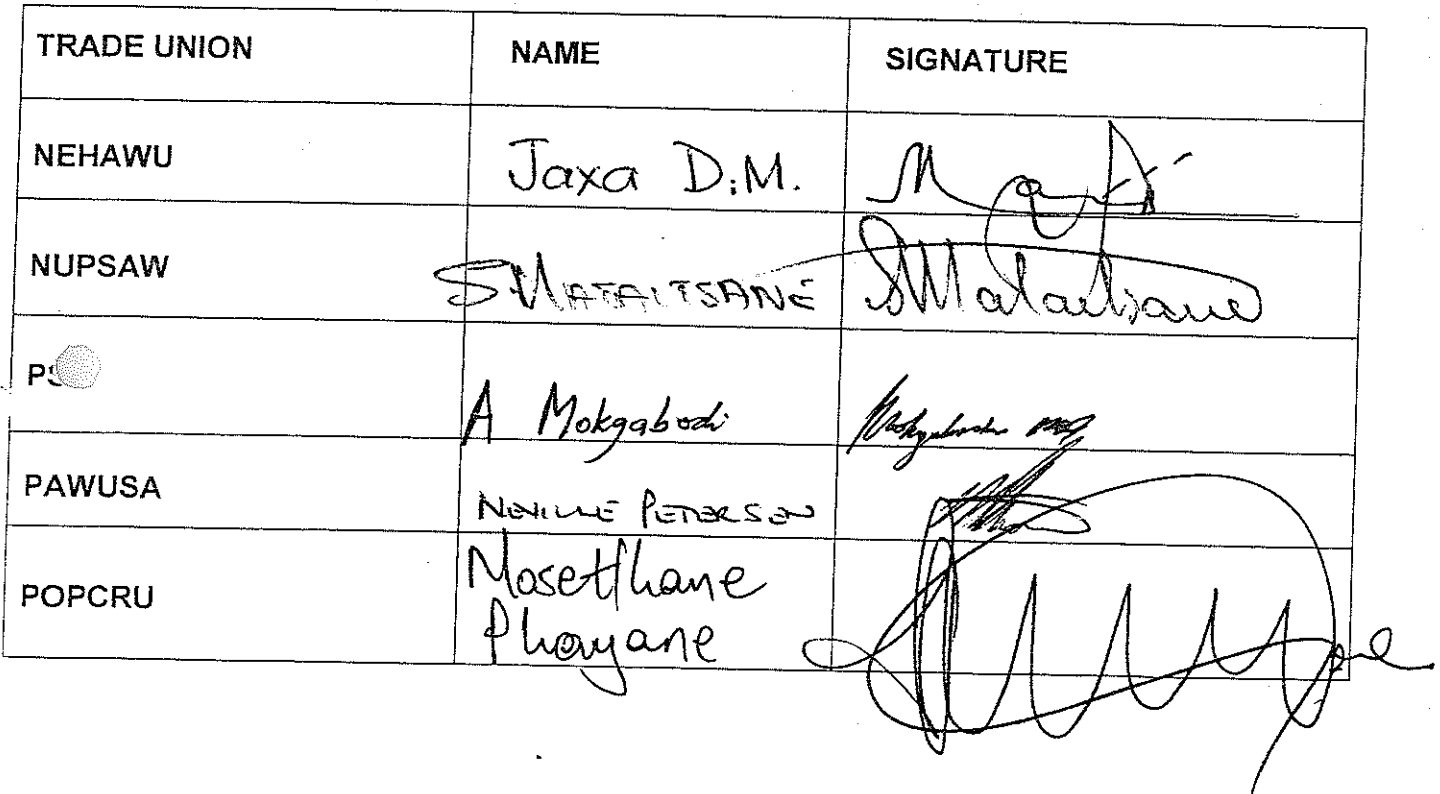 TRADE UNION NAME SIGNATURE
NEHAWU Jaxa D.M.
NUPSAW S MATAITSANE SMataitsane
PS
A Mokgabodi
PAWUSA NEVILLE PETERSEN
POPCRU Mosetlhane
Phayane